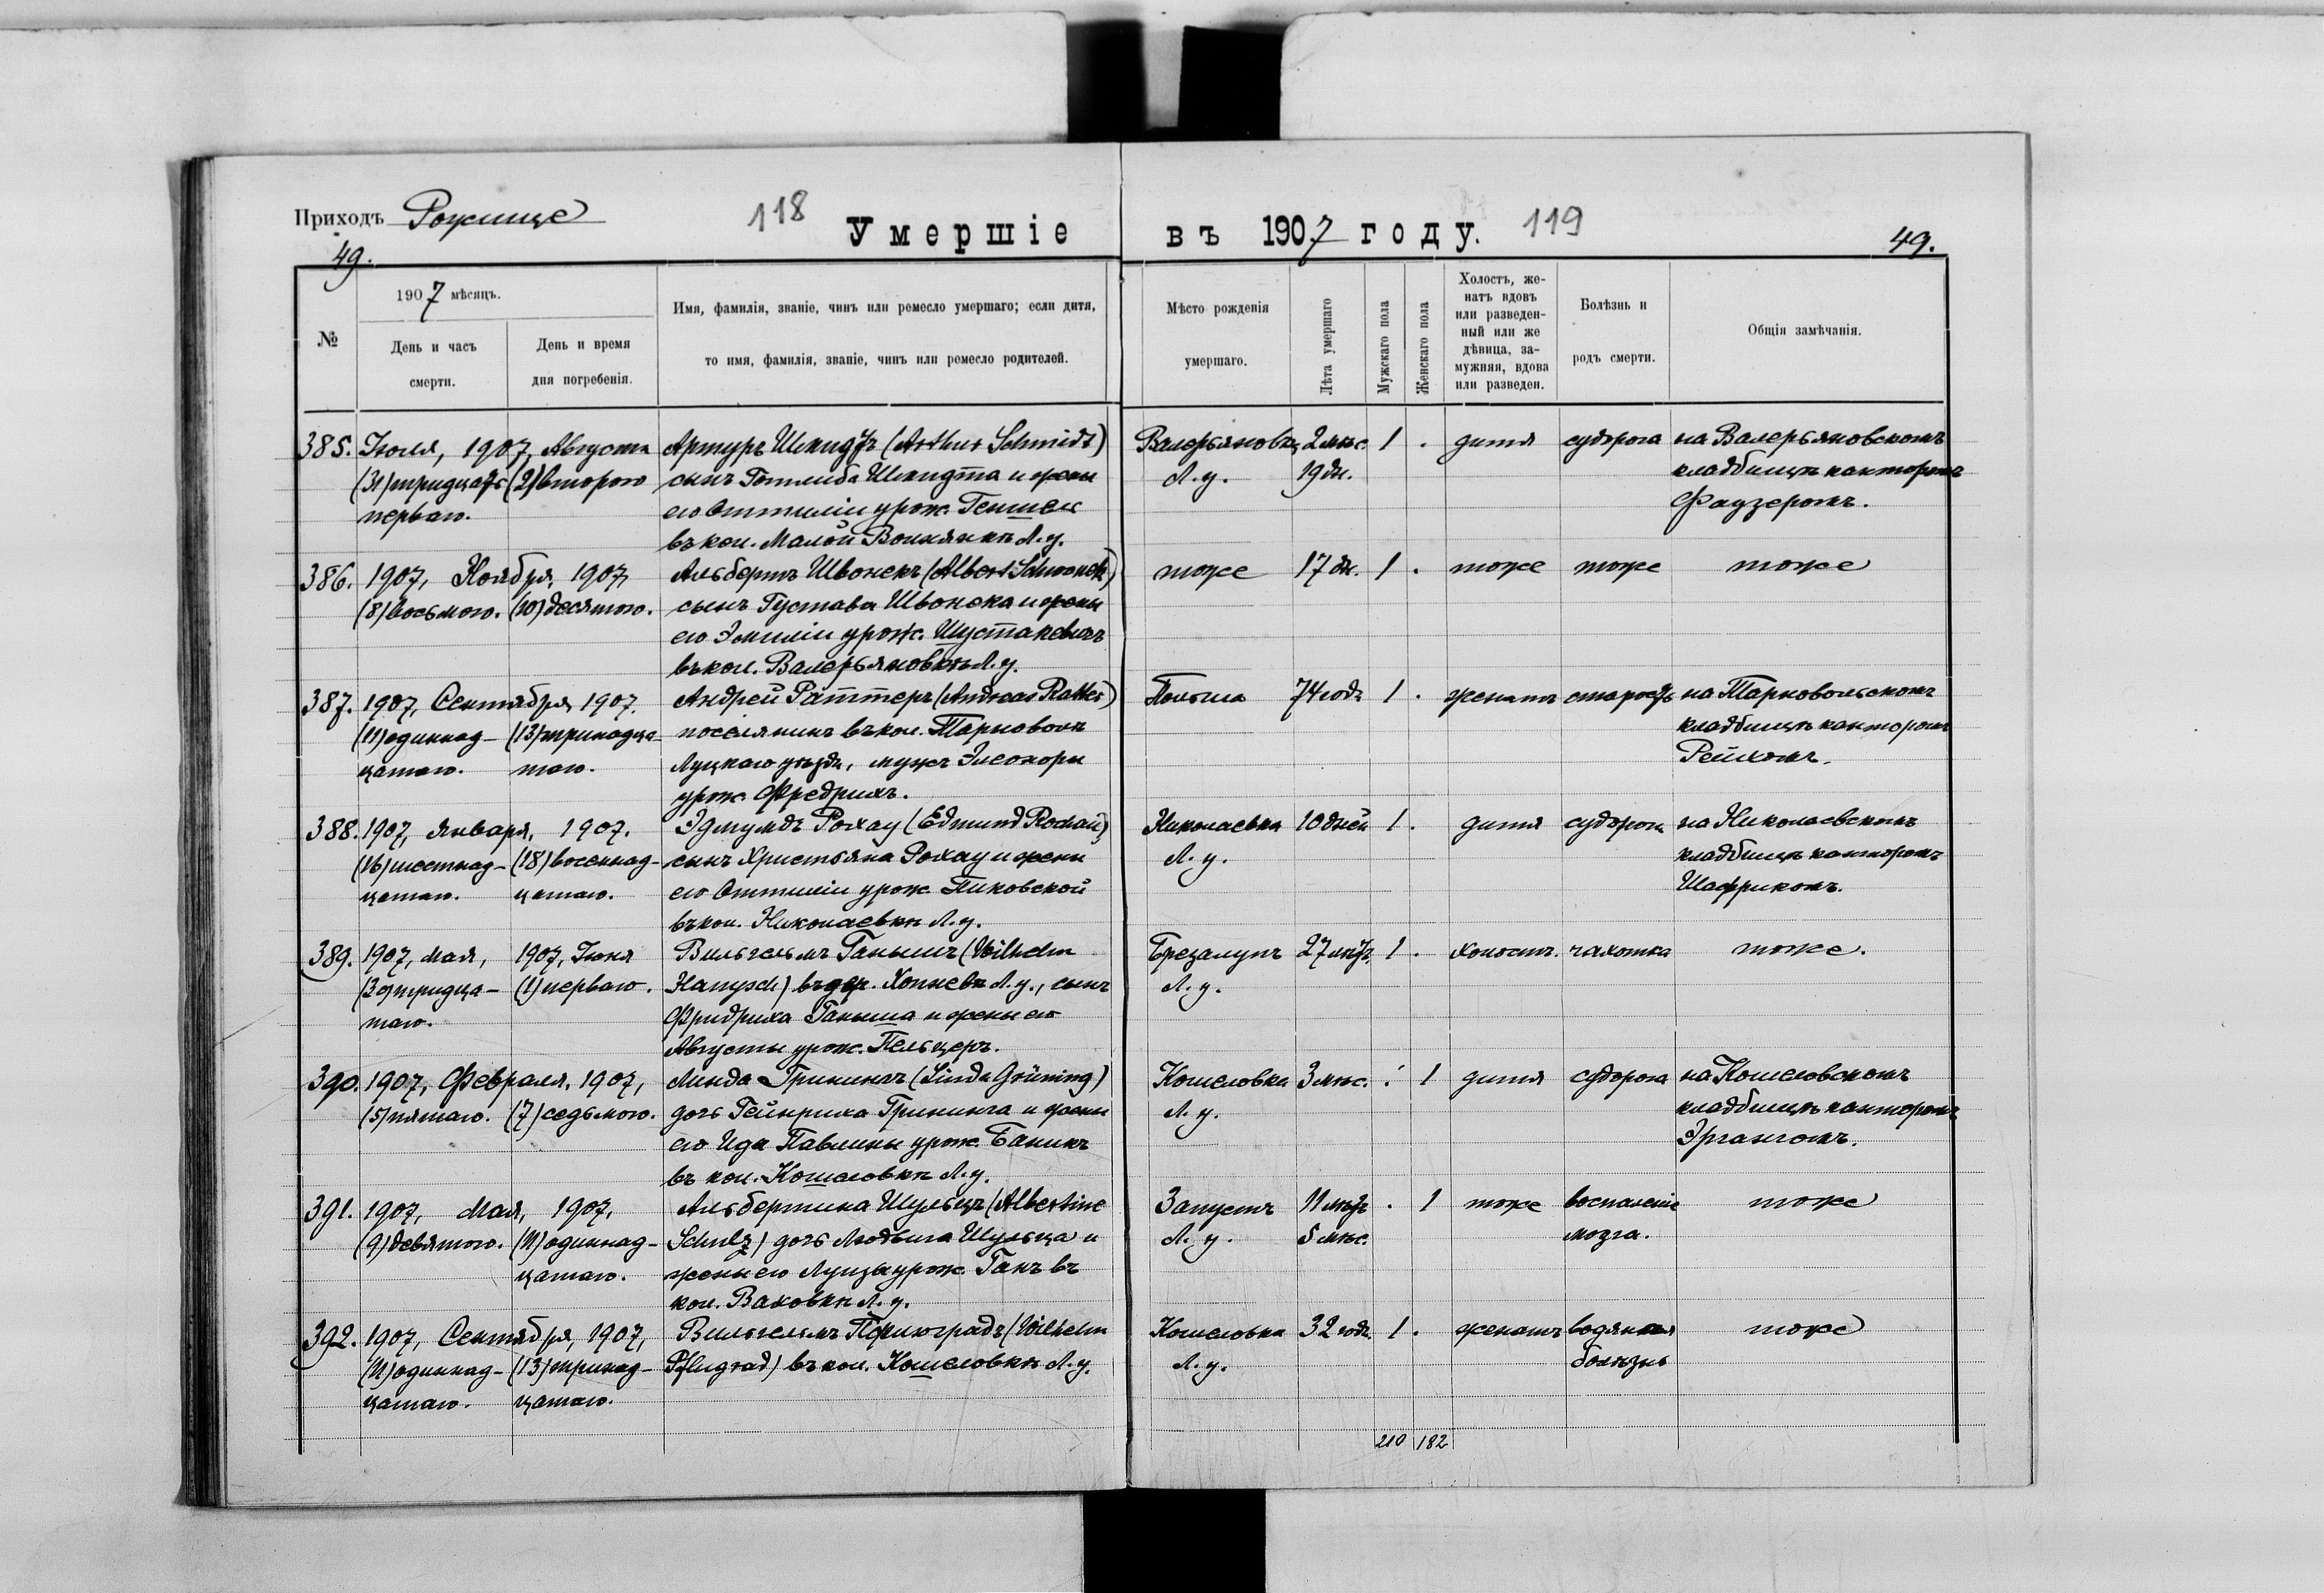 Приходъ Рожище
118
Умершіе
въ 1907 году.
119
49.
49.
№
1907 мѣсяцъ.
День и часъ
смерти.
День и время
дня погребенія.
Имя, фамилія, званіе, чинъ или ремесло умершаго; если дитя,
то имя, фамилія, званіе, чинъ или ремесло родителей.
Мѣсто рожденія
умершаго.
Лѣта умершаго
Мужскаго пола
Женскаго пола
Холостъ, же-
натъ вдовъ
или разведен-
ный или же
дѣвица, за-
мужняя, вдова
или разведен.
Болѣзнь и
родъ смерти.
Общія замѣчанія.
385. Іюля, 1907, Августа Артуръ Шмидтъ (Arthur Schmidt) Валерьяновка 2 мѣс. 1 . дитя судорога на Валерьяновскомъ
(31) тридцать (2) второго сынъ Готлиба Шмидта и жены Л. у. 19 дн. кладбищѣ канторомъ
перваго. его Оттиліи урож. Геншель Фаузеромъ.
въ кол. Малой Волнянкѣ Л. у.
386. 1907, Ноября, 1907, Альбертъ Швонекъ (Albert Schwonek) тоже 17 дн. 1 . тоже тоже тоже
(8) восьмого. (10) десятого. сынъ Густава Швонека и жены
его Эмиліи урож. Шустакевичъ
въ кол. Валерьяновкѣ Л. у.
387. 1907, Сентября, 1907. Андрей Раттеръ (Andreas Ratter) Польша 74 года 1 . женатъ старость на Тарновольскомъ
(11) одиннад- (13) тринадца- поселянинъ въ кол. Тарноволѣ кладбищѣ канторомъ
цатаго. таго. Луцкаго уѣзда, мужъ Элеоноры Рейхомъ.
урож. Фредрихъ.
388. 1907, Января, 1907. Эдмундъ Рохау (Edmund Rochau) Николаевка 10 дней 1 . дитя судорога на Николаевскомъ
(16) шестнад- (18) восемнад- сынъ Христьяна Рохау и жены Л. у. кладбищѣ канторомъ
цатаго. цатаго. его Оттиліи урож. Пиковской Шафрикомъ.
въ кол. Николаевкѣ Л. у.
389. 1907, Мая, 1907, Іюня Вильгельмъ Ганышъ (Wilhelm Брезалупъ 27 лѣтъ 1 . холостъ. чахотка тоже.
(30) тридца- (1) перваго. Hanysch) въ дер. Холневѣ Л. у., сынъ Л. у.
таго. Фридриха Ганыша и жены его
Августы урож. Пельцеръ.
390. 1907, Февраля, 1907, Линда Грининъ (Linda Grüning) Кошеловка 3 мѣс. . 1 дитя судорога на Кошеловскомъ
(5) пятаго. (7) седьмого. дочь Гейнриха Грининга и жены Л. у. кладбищѣ канторомъ
его Ида Павлины урож. Баникъ Эргангомъ.
въ кол. Кошеловкѣ Л. у.
391. 1907, Мая, 1907, Альбертина Шульцъ (Albertine Запустъ 11 лѣтъ . 1 тоже воспаленіе тоже
(9) девятого. (11) одиннад- Schulz) дочь Людвига Шульца и Л. у. 5 мѣс. мозга.
цатаго. жены его Луизы урож. Ганъ въ
кол. Ваковкѣ Л. у.
392. 1907, Сентября, 1907, Вильгельмъ Пфлюградъ (Wilhelm Кошеловка 32 года 1 . женатъ водяная тоже
(11) одиннад- (13) тринад- Pflugrad) въ кол. Кошеловкѣ Л. у. Л. у. болѣзнь
цатаго. цатаго.
210 182